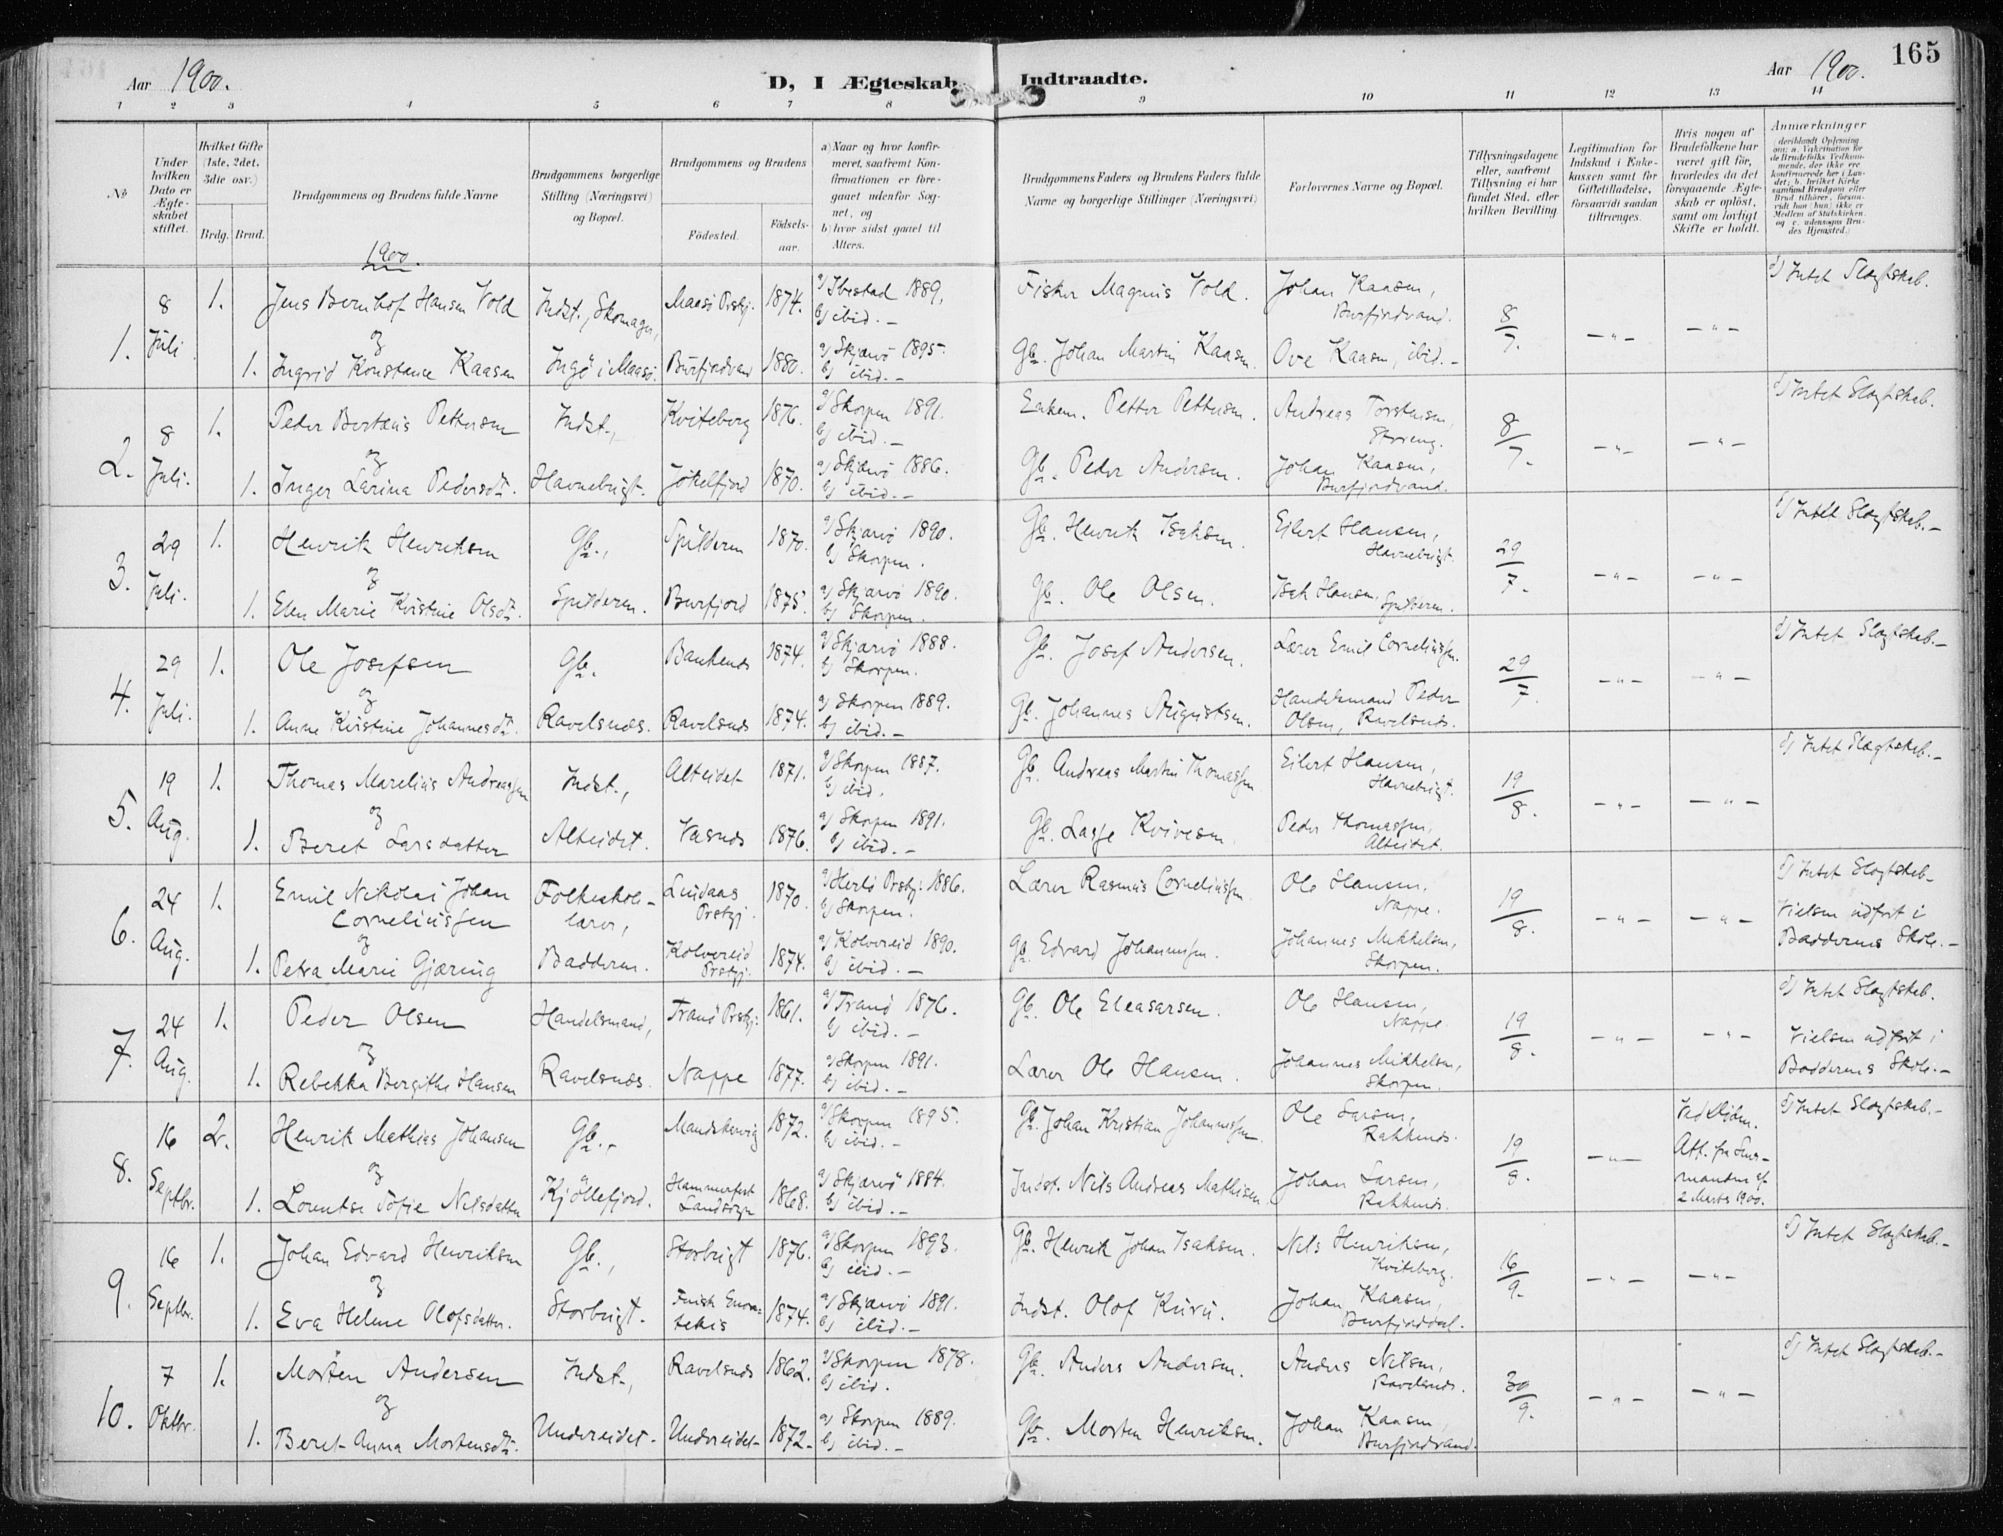 165
Aar 1900. D, I Ægteskab Indtraadte. Aar 1900.
1 2 3 4 5 6 7 8 9 10 11 12 13 14
No
Under hvilken Dato er Ægteskabet stiftet.
Hvilket Gifte (1ste, 2det, 3die osv.)
Brdg. Brud.
Brudgommens og Brudens fulde Navne
Brudgommens borgerlige Stilling (Næringsvei) og Bopæl.
Brudgommens og Brudens
Fødested.
Fødselsaar.
a) Naar og hvor konfirmeret, saafremt Konfirmationen er foregaaet udenfor Sognet, og
b) hvor sidst gaaet til Alters.
Brudgommens Faders og Brudens Faders fulde Navne og borgerlige Stillinger (Næringsvei)
Forlovernes Navne og Bopæl.
Tillysningsdagene eller, saafremt Tillysning ei har fundet Sted, efter hvilken Bevilling
Legitimation for Indskud i Enkekassen samt for Giftetilladelse, forsaavidt saadan tiltrænges.
Hvis nogen af Brudefolkene har været gift før, hvorledes da det foregaaende Ægteskab er opløst, samt om lovligt Skifte er holdt.
Anmærkninger
1900.
1. 8 Juli 1. Jens Bernhof Hansen Vold Indst., Skomager, Maasø Prstgj. 1874. a) Ibestad 1889, b) ibid. — Fisker Magnus Vold. Johan Kaasen, Burfjordvand. 8/7. — „ — — „ — d) Intet Slægtskab.
og
1. Ingrid Konstance Kaasen Ingø i Maasø. Burfjordvand 1880. a) Skjærvø 1895. b) ibid. — Gb. Johan Martin Kaasen. Ove Kaasen, ibid. —
2. 8 Juli. 1. Peder Bertæus Pettersen Indst., Kviteberg 1876. a) Skorpen 1891. b) ibid. — Enkem. Petter Pettersen. Andreas Torstensen, 8/7. — „ — — „ — d) Intet Slægtskab.
og
1. Inger Larina Pedersdt. Havnebugt. Jøkelfjord 1870. a) Skjærvø 1886. b) ibid. — Gb. Peder Andersen. Johan Kaasen, Burfjordvand.
3. 29 Juli. 1. Henrik Henriksen Gb., Spilderen 1870. a) Skjærvø 1890. b) Skorpen. Gb. Henrik Isaksen. Eilert Hansen, Havnebugt. 29/7. — „ — — „ — d) Intet Slægtskab. —
og
1. Elen Marie Kristine Olsdt. Spilderen. Burfjord 1875. a) Skjærvø 1890. b) Skorpen. Gb. Ole Olsen. Isak Hansen, Spilderen.
4. 29 Juli. 1. Ole Josefsen Gb. Bankenes 1874. a) Skjærvø 1888. b) Skorpen. Gb. Josef Andersen. Lærer Emil Corneliussen. 29/7. — „ — — „ — d) Intet Slægtskab. —
og
1. Anne Kristine Johannesdt. Ravelsnæs. Ravelsnæs 1874. a) Skorpen 1889. b) ibid. — Gb. Johannes Augustsen. Handelsmand Peder Olsen, Ravelsnæs.
5. 19 Aug. 1. Thomas Marelius Andreassen Indst., Alteidet 1871. a) Skorpen 1887. b) ibid. Gb. Andreas Martin Thomassen Eilert Hansen, Havnebugt. 19/8. — „ — — „ — d) Intet Slægtskab. —
og
1. Beret Larsdatter Alteidet. Vasnes 1876. a) Skorpen 1891. b) ibid. — Gb. Lasse Kvivesen. Peder Thomassen, Alteidet.
6. 24 Aug. 1. Emil Nikolai Johan Corneliussen Folkeskolelærer, Lindaas Prstgj. 1870. a) Herlø Prstgj. 1886. b) Skorpen. Lærer Rasmus Corneliussen Ole Hansen, Nappe. 19/8. — „ — — „ — d) Intet Slægtskab — Vielsen udført i Badderens Skole. —
og
1. Petra Marie Gjæring Badderen. Kolvereid Prstgj. 1874. a) Kolvereid 1890. b) ibid. — Gb. Edvard Johannessen. Johannes Mikkelsen, Skorpen.
7. 24 Aug. 1. Peder Olsen Handelsmand, Tranø Prstgj. 1861. a) Tranø 1876. b) ibid. — Gb. Ole Eleasarsen. Ole Hansen, Nappe. 19/8. — „ — — „ — d) Intet Slægtskab. Vielsen udført i Badderens Skole. —
og
1. Rebekka Bergithe Hansen Ravelsnæs. Nappe 1877. a) Skorpen 1891. b) ibid. — Lærer Ole Hansen. Johannes Mikkelsen, Skorpen.
8. 16 Septbr. 2. Henrik Mathias Johansen Gb., 1872. a) Skorpen 1895. b) ibid. — Gb. Johan Kristian Johannessen. Ole Larsen, Rakkenes. 19/8. — „ — Ved Døden. Att. fra Lensmanden af 2 Marts 1900. d) Intet Slægtskab. —
og
1. Lorentse Tofie Nilsdatter Kjøllefjord. Hammerfest Landsogn 1868. a) Skjærvø 1884. b) ibid. — Indst. Nils Andreas Mathisen. Johan Larsen, Rakkenes.
9. 16 Septbr. 1. Johan Edvard Henriksen Gb., Storbugt 1876. a) Skorpen 1893. b) ibid. — Gb. Henrik Johan Isaksen. Nils Henriksen, Kviteberg. 16/9. — „ — — „ — d) Intet Slægtskab. —
og
1. Eva Helene Olofsdatter. Storbugt. Finsk Enontekis 1874. a) Skjærvø 1891. b) ibid. — Indst. Olof Kuru. Johan Kaasen,
10. 7 Oktbr. 1. Morten Andersen Indst., Ravelsnes 1862. a) Skorpen 1878. b) ibid. Gb. Anders Andersen. Anders Nilsen, Ravelsnes. 30/9. — „ — — „ — d) Intet Slægtskab. —
og
1. Beret Anna Mortensdt. Undereidet. Undereidet 1872. a) Skorpen 1889. b) ibid. — Gb. Morten Henriksen. Johan Kaasen, Burfjordvand.